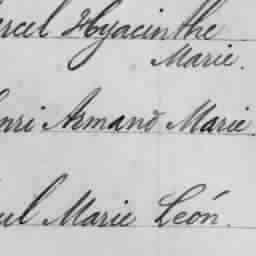 rcel Hyacinthe
Marie.
nri Armand Marie
ul Marie León.